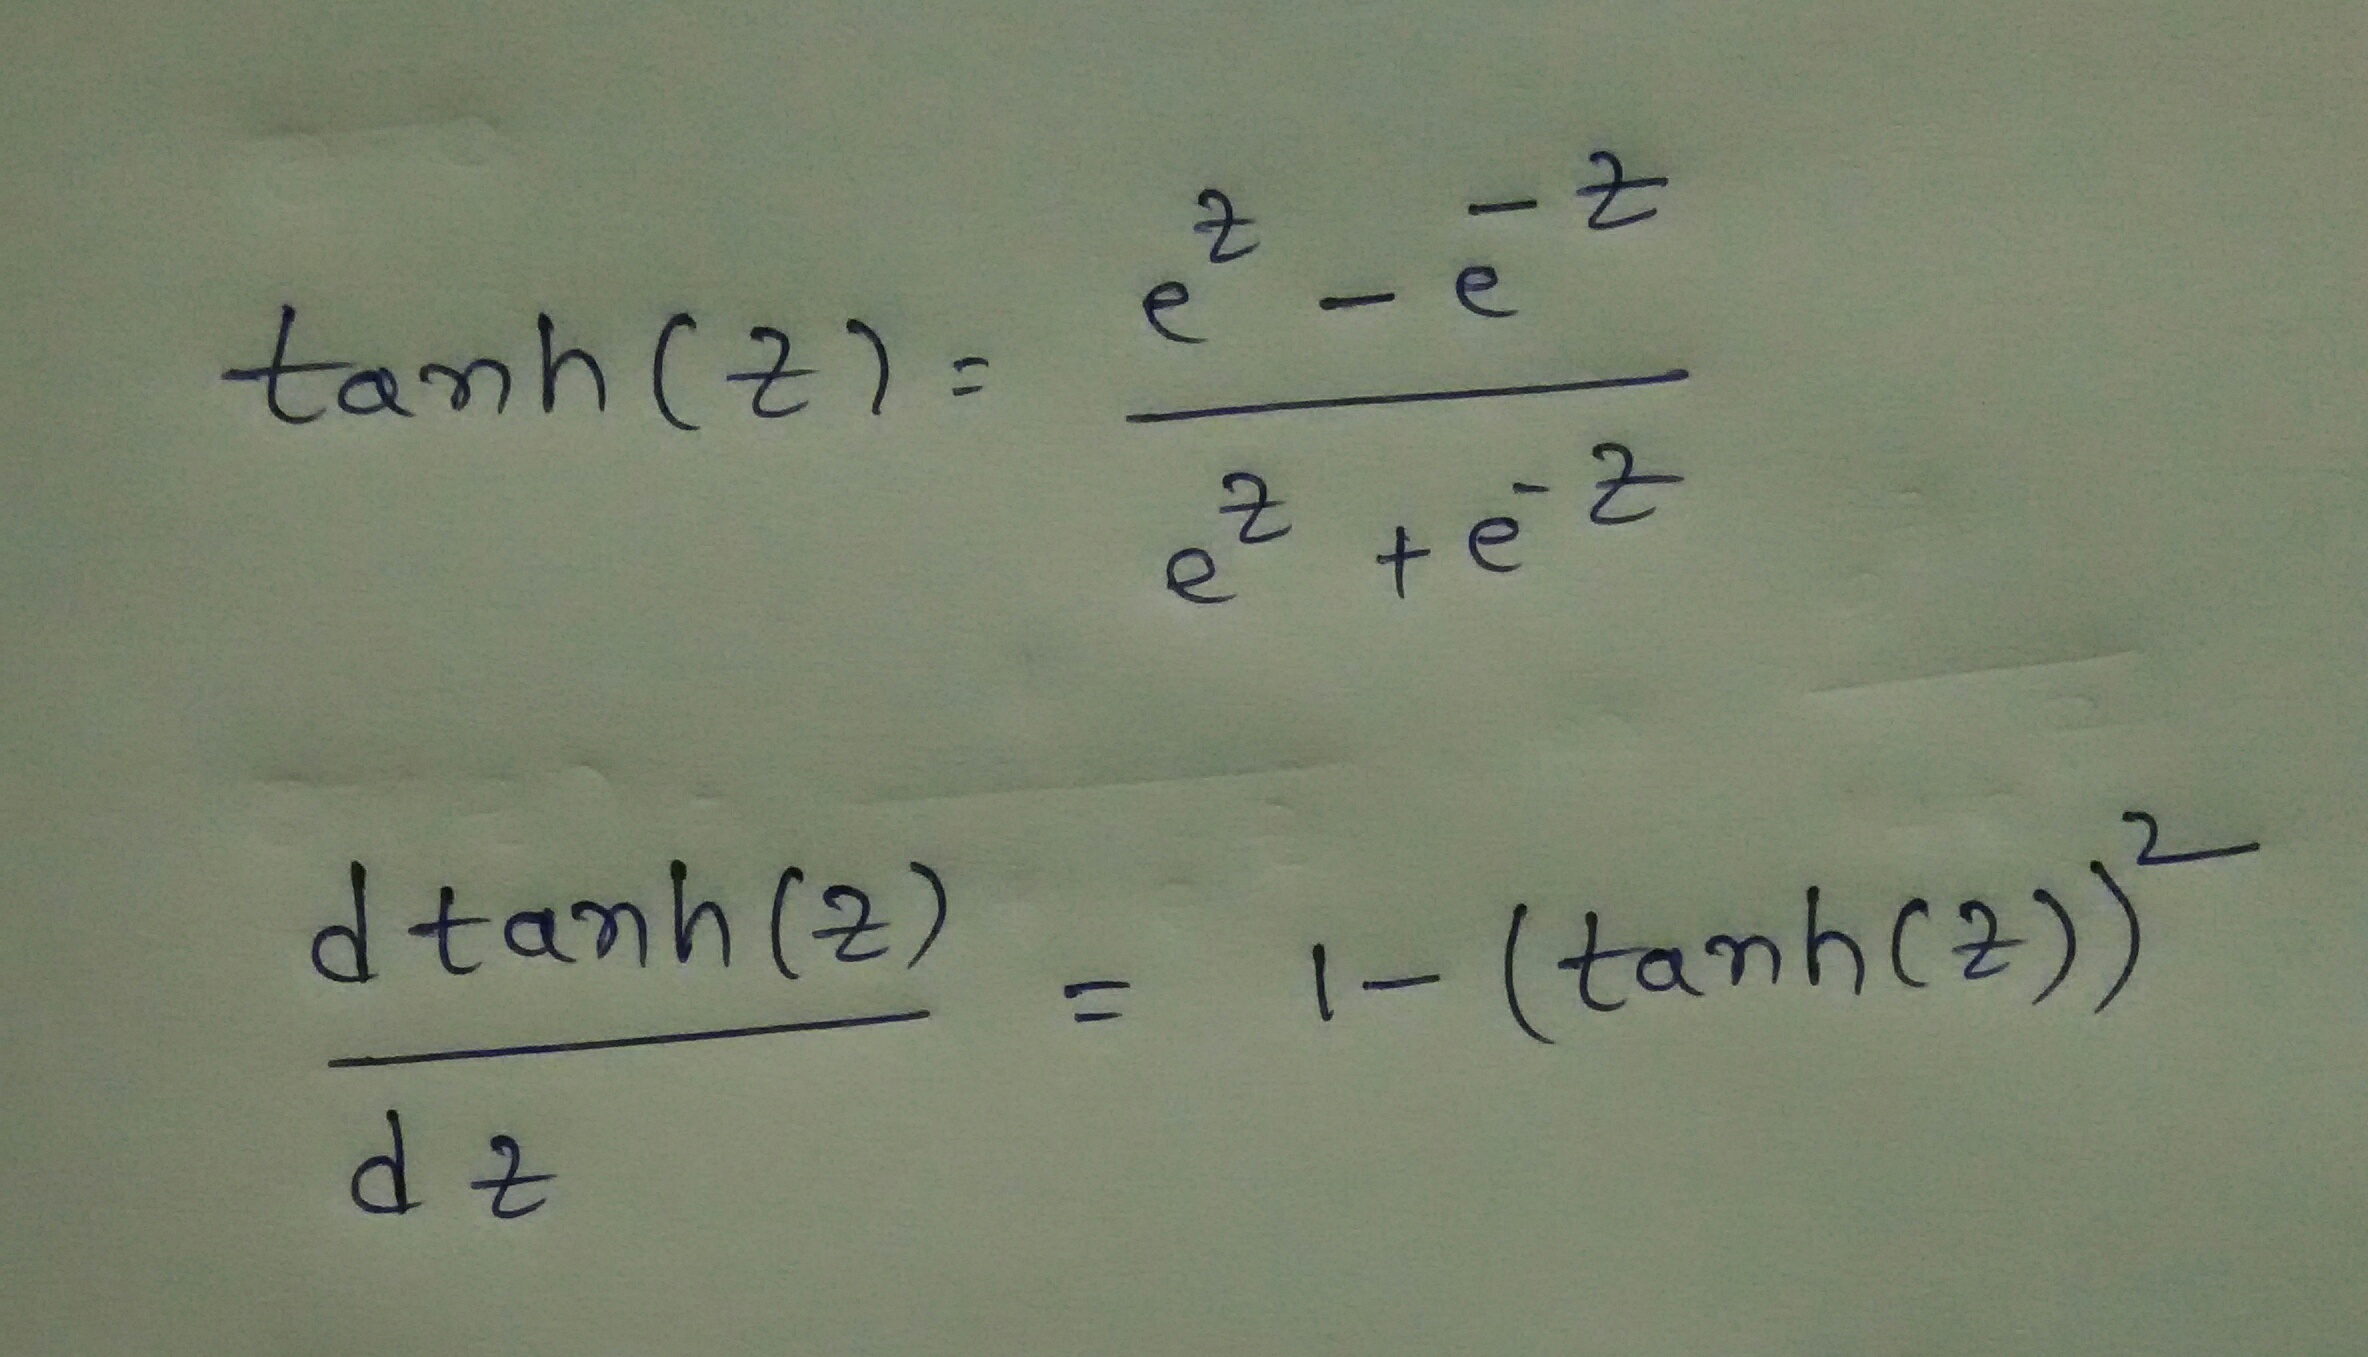 tanh(z) = (e^z - e^-z) / (e^z + e^-z)
d tanh(z) / dz = 1 - (tanh(z))^2